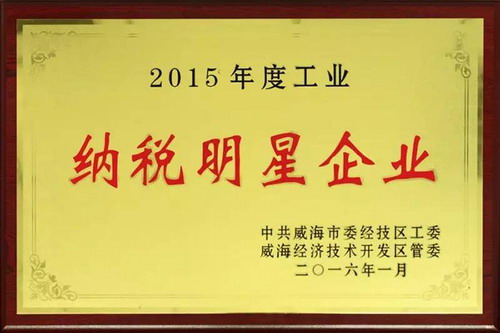 2015年度工业
纳税明星企业
中共威海市委经技区工委
威海经济技术开发区管委
二〇一六年一月